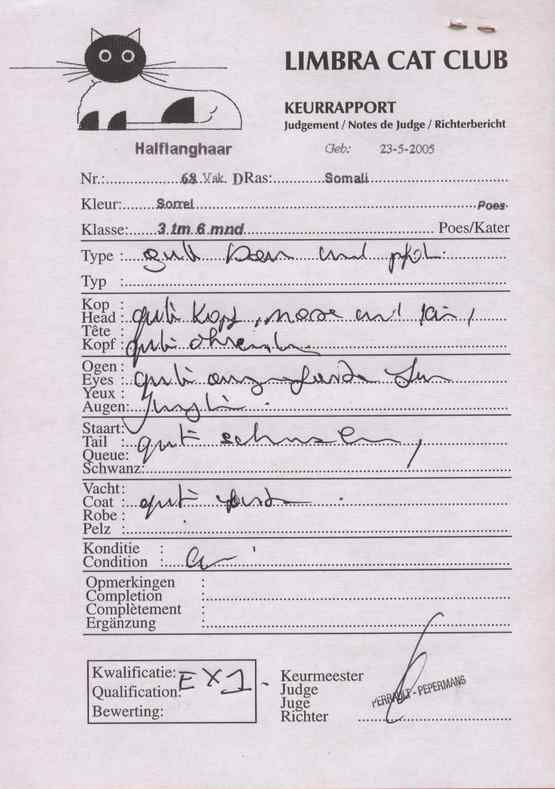 LIMBRA CAT CLUB
KEURRAPPORT
Judgement / Notes de Judge / Richterbericht
Halflanghaar Geb: 23-5-2005
Nr.: 68 Vak. D Ras: Somali
Kleur: Sorrel Poes
Klasse: 3 tm 6 mnd Poes/Kater
Type : gute und
Typ :
Kop :
Head : gute Kopf, nase und
Tête :
Kopf : gute
Ogen :
Eyes : gute
Yeux :
Augen:
Staart:
Tail : gute
Queue:
Schwanz:
Vacht:
Coat : gute
Robe :
Pelz :
Konditie :
Condition :
Opmerkingen :
Completion :
Complètement :
Ergänzung :
Kwalificatie: EX1
Qualification:
Bewerting:
Keurmeester
Judge
Juge
Richter
PERRAULT - PEPERMANS